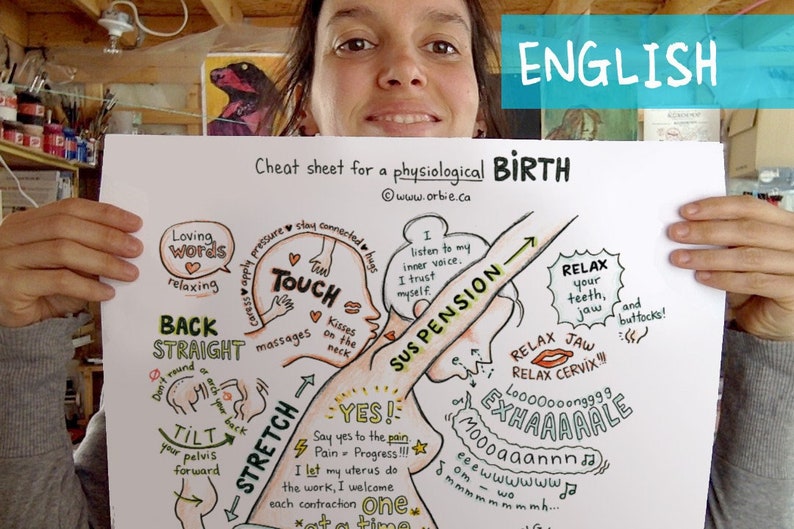 ENGLISH
Cheat sheet for a physiological BIRTH
©www.orbie.ca
Loving
words
relaxing
caress ♥ apply pressure ♥ stay connected ♥ hugs
TOUCH
massages
Kisses
on the
neck
I
listen to my
inner voice.
I trust
myself.
SUSPENSION
RELAX
your
teeth,
jaw
and
buttocks!
RELAX JAW
RELAX CERVIX!!!
BACK
STRAIGHT
Don't round or arch your back
TILT
your pelvis
forward
STRETCH
YES!
Say yes to the pain.
Pain = Progress!!!
I let my uterus do
the work, I welcome
each contraction one
at a time
Looooooongggg
EXHAAAAAALE
MOOOAAAAANNN
eeewwwwwww
om - wo
mmmmmmmmh...